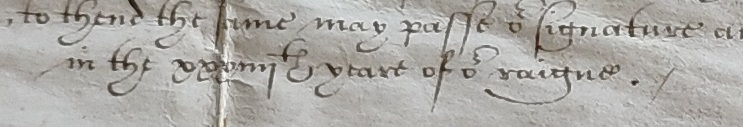 , to thend the same may passe oʳ signature a
in the xxxviijth yeare of oʳ raigne. /